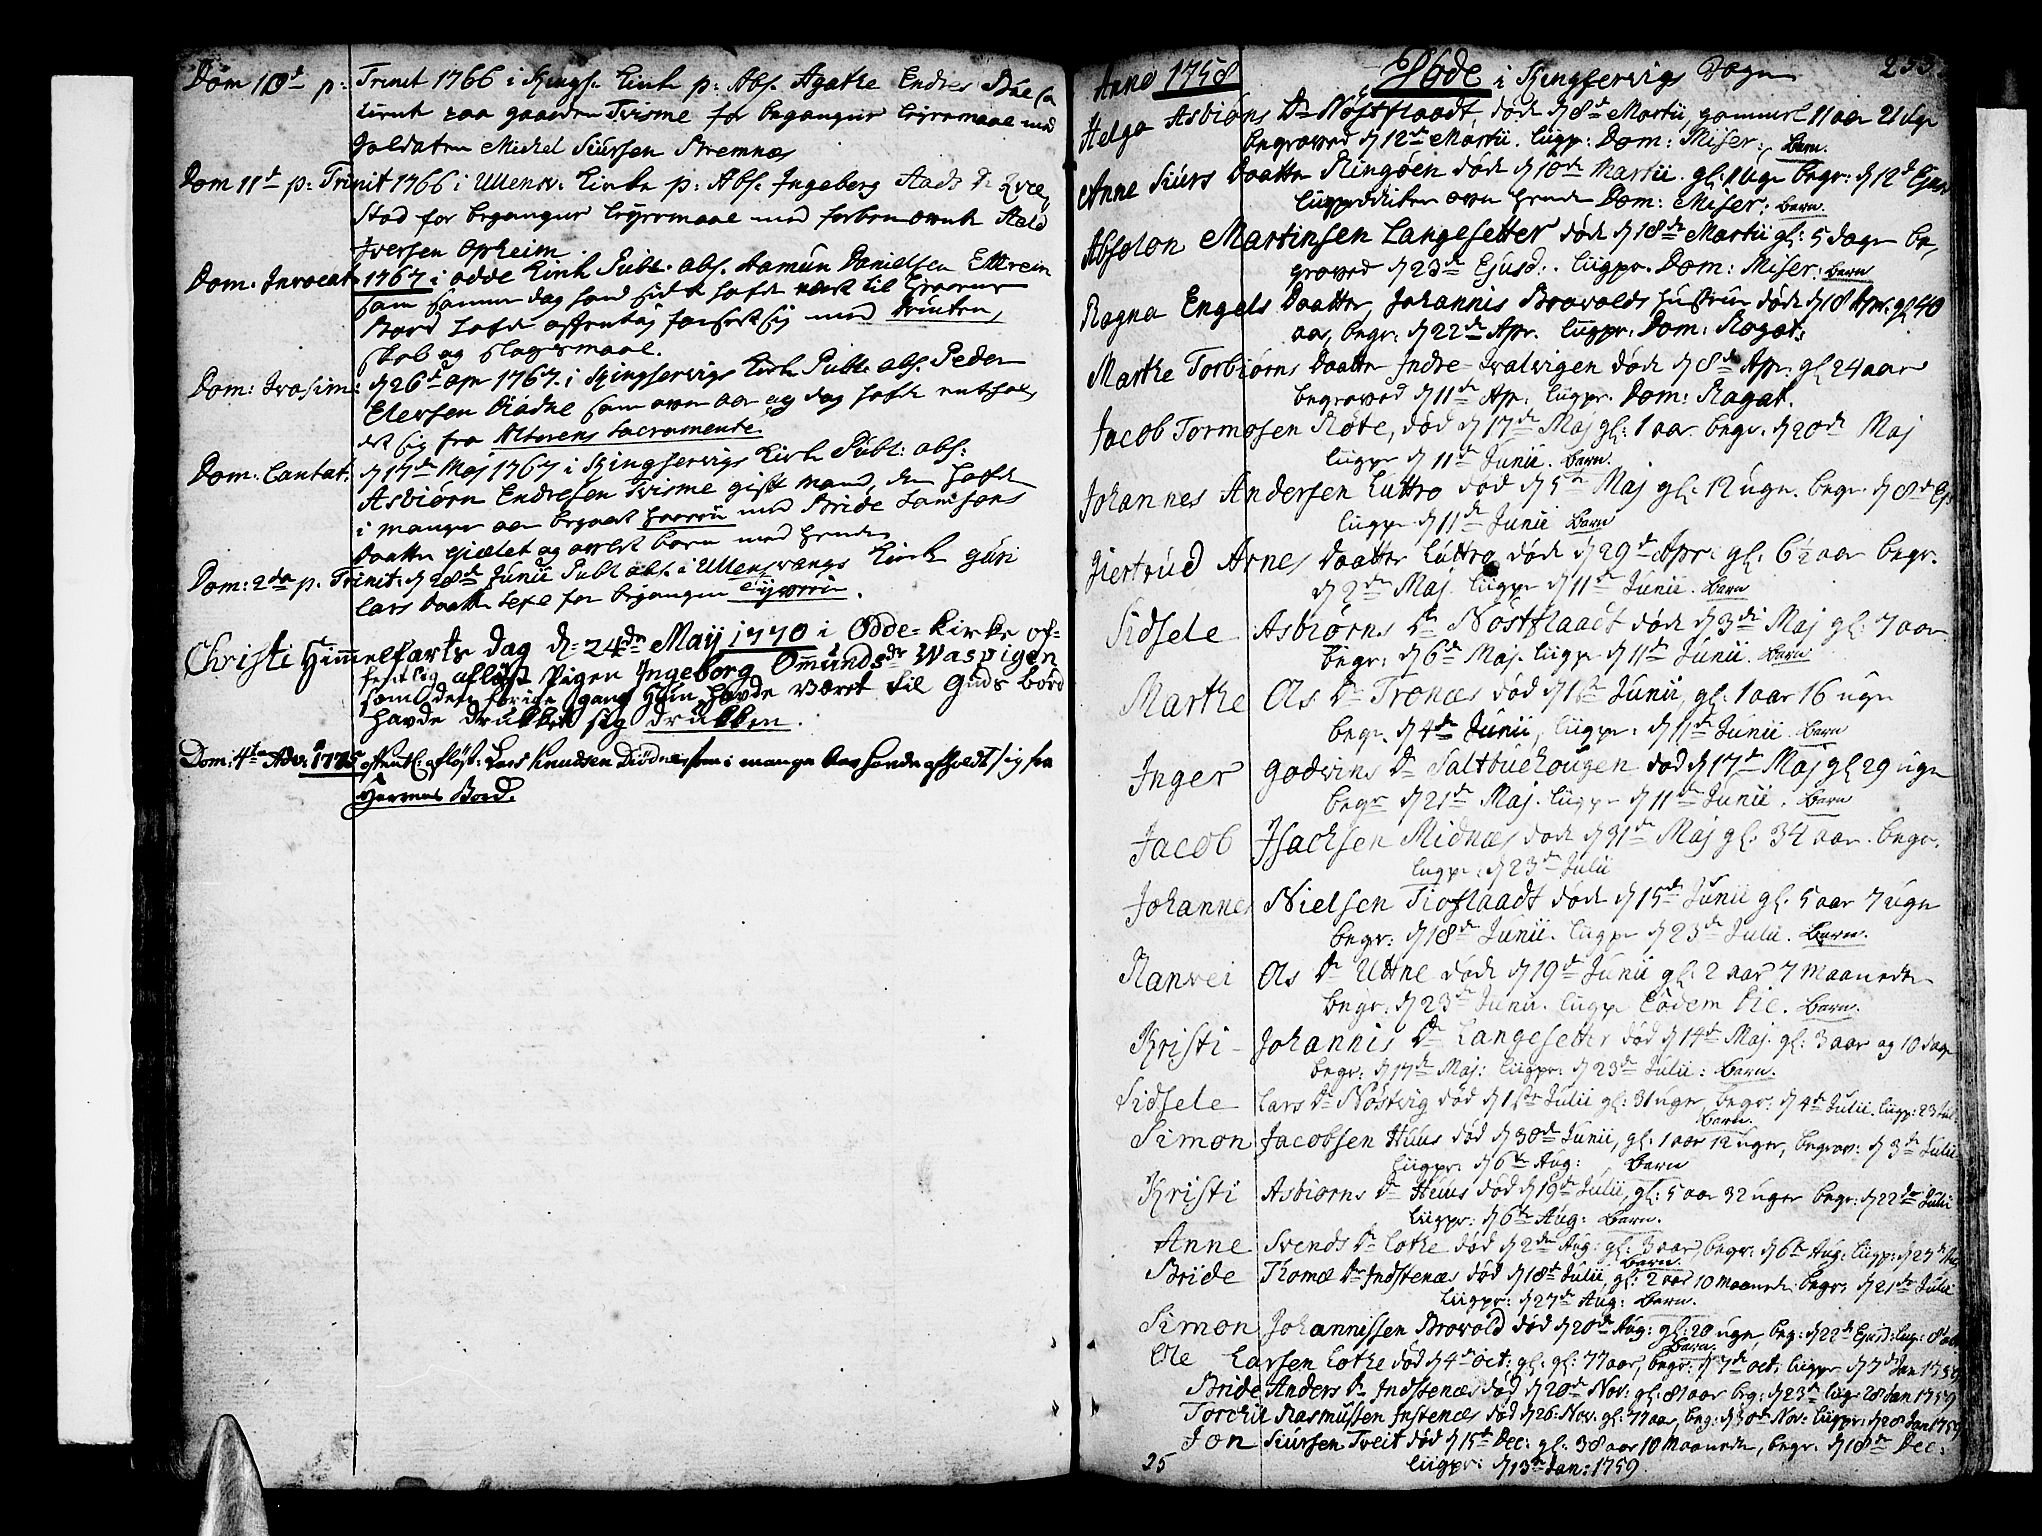 Dom 10de p: Trinit 1766 i Kings. Kirk p: Abs. Agathe Endres
paa gaarden Tvisme for begangne leyermaal med
Soldaten Michel Siursen Bremnæs
Dom 11te p: Trinit 1766 i Ullensv: Kirke p: Abs. Ingeberg Aads Dr
Stad for begangne leyermaal med
Iversen Opheim.
Dom. Invocat. 1767 i Odde Kirk Publ. abs. Aamün Danielsen Eitrein
som samme dag hand sidst hafde vært til Herrens
Bord hafde offentlig forseet sig med Drücken,
skab og slagsmaal.
Dom: Qvasim: d 26de apr 1767. i Kingservigs Kirk Publ. abs. Peder
som over aar og dag hafde enthol,
det sig fra Alterens Sacramente.
Dom. Cantat. d 17de Maj 1767 i Kingservigs Kirk Publ: abs:
Asbiörn Endresen Tvisme gift mand, der hafde
i mange aar begaaet hoererü med Bride Samsons
Daatter Giætet og avlet barn med hende
Dom: 2da p. Trinit: d 28de Junii Publ abs. i Ullensvangs Kirk Güri
Lars Daatter for begangen
Christi Himmelfarts Dag d: 24de Maij 1770 i Odde-Kirke of=
fentlig aflöst Pigen Ingeborg Omünds dr Waspigen
som den forrige gang Hun havde været til Guds bord
havde drukket sig drükken.
Dom: 4te Adv: 1775 offentl: aflöst: Lars Knudsen Diödne som i mange Aar havde afholdt sig fra
Herrens Bord.
Anno 1758 Döde i Kingservigs Sogn 233.
Helga Asbiöns Dr Nöstflaadt, död d 8de Martii, gammel 11 aar 21 uge
begraved d 12te Martii. liigpr: Dom: Miser: Barn.
Anne Siurs Daatter Ringöen död d 10de Martii. gl: 1 uge begr: d 12te Ejus
liigprediken over hende Dom: Miser: barn.
Absolon Martinsen Langesetter död d 18de Martii gl: 5 dage be,
graved d 23de Ejusd: liigpr. Dom: Miser: barn
Ragna Engels Daatter, Johannis Brovolds hustrue död d 18 Apr. gl 40
aar, begr: d 22de Apr. liigpr: Dom: Rogat:
Marthe Torbiörns Daatter Indre- död d 8de Apr: gl 24 aar
begraved d 11te Ap: liigpr. Dom: Rogat.
Jacob Tormosen Röte, död d 17de Maj gl: 1 aar. begr. d 20de Maj
liigpr d 11te Junii. Barn.
Johannes Andersen Lüttro död d 5te Maj gl: 12 ugr. begr. d 8de Ejs
liigpr d 11te Junii Barn
Giertrüd Arnes Daatter Lüttro, döde d 29de Apr: gl. 6½ aar begr.
d 2den Maj. liigpr d 11te Junii. Barn
Sidsele Asbiörns Dr Nöstflaadt döde d 3die Maj gl: 7 aar
begr: d 6te Maj. liigpr d 11te Junii. Barn
Marthe Ols Dr Tronæs död d 1ste Junii, gl. 1 aar 16 ugr
begr. d 4de Junii, liigpr: d 11te Junii. Barn
Inger Godvins Dr Saltbuehougen död d 17de Maj gl 29 ugr
begr d 21de Maj. liigpr d 11te Junii. Barn
Jacob Jsachsen Midnæs döde d 31de Maj gl. 34 aar. begr.
liigpr: d 23de Julii
Johannes Nielsen Tioflaadt döde d 15de Junii gl. 5 aar 7 ugr
begr: d 18de Junii. liigpr d 23de Julii. Barn.
Ranvei Ols Dr Uttne döde d 19de Junii gl: 2 aar 7 Maaneder
begr: d 23de Junii. liigpr Eodem Die. Barn.
Kristi- Johannis Dr Langesetter död d 14de Maj. gl: 3 aar og 10 dage
begr: d 17de Maj: liigpr: d 23de Julii: Barn.
Sidsele Lars Dr Nöstvig död d 1ste Julii gl: 31 uger begr: d 4de Julii. liigpr: 23 Jul
Barn.
Simon Jacobsen Huus död d 30de Junii, gl: 1 aar 12 uger, begrav: d 3de Julii
liigpr: d 6te Aug: Barn
Kristi Asbiorns Dr Huus död d 19de Julii, gl: 5 aar 32 uger begr: d 22de Julii
liigpr: d 6te Aug: Barn.
Anne Svends Dr Lothe död d 2den Aug: gl: 3 aar, begr: d 6te Aug: liigpr: d 27de Aug
Barn.
Bride Thomæ Dr Indstenæs död d 18de Julii, gl: 2 aar 10 Maaneder begr: d 21de Julii
liigpr: d 27de Aug: Barn.
Simon Johannissen Brovold död d 20de Aug: gl: 20 ugr, beg: d 22de Ejusd: liigpr: 8
Barn.
Ole Larsen Lothe död d 4de Oct: gl: gl: 77 aar, begr: d 7de Oct: liigpr d 7de Jan 1759
Bride Anders Dr Indstenæs död d 20de Nov: gl: 81 aar beg: d 23de liigpr 28 Jan 1759
Torchil Rasmussen Instenæs död d 26: Nov: gl: 77 aar, beg: d 30te Nov: liigpr: d 28 Jan 1759
Jon Siursen Tveit död d 15de Dec: gl: 38 aar 10 Maaneder, begr: d 18de Dec:
25 liigpr: d 13de Jan: 1759